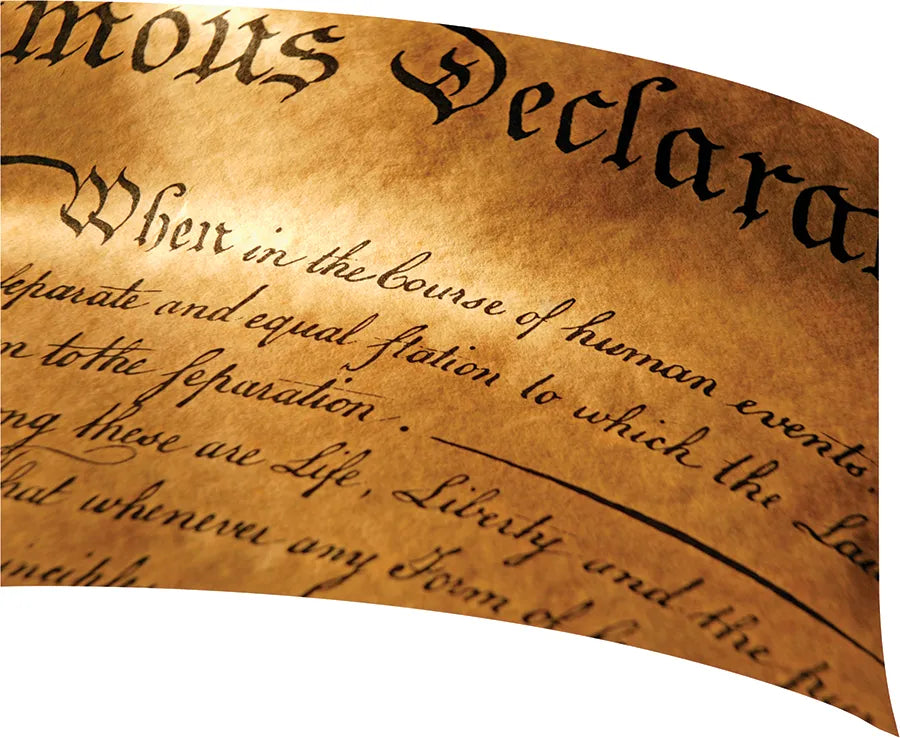 mous Declara
When in the Course of human events
ſeparate and equal ſtation to which the Law
n to the ſeparation . —
ng these are Life, Liberty and the pur
hat whenever any Form of
inciple